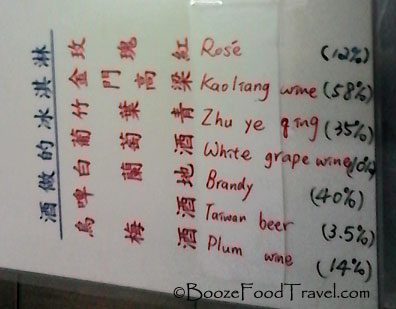 酒做的冰淇淋
玫瑰紅 Rosé (12%)
金門高梁 Kaoliang wine (58%)
竹葉青 Zhu ye qing (35%)
葡萄酒 White grape wine
白蘭地 Brandy (40%)
啤酒 Taiwan beer (3.5%)
烏梅酒 Plum wine (14%)
©BoozeFoodTravel.com